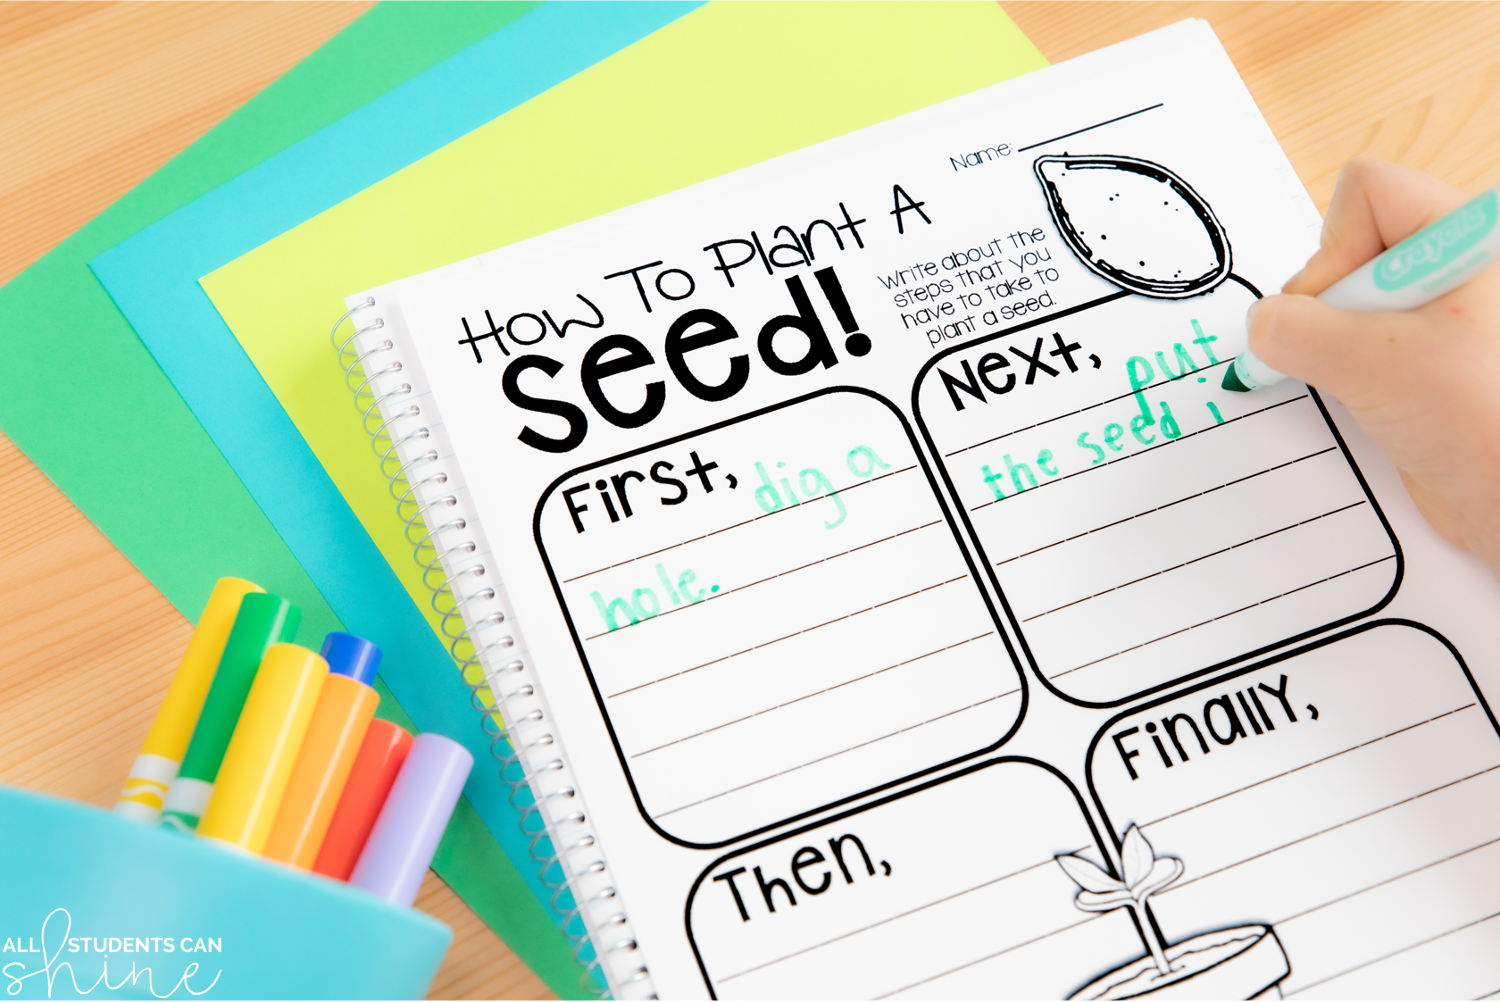 Name:
How To Plant A
seed!
Write about the
steps that you
have to take to
plant a seed.
First, dig a
hole.
Next, put
the seed i
Then,
Finally,
Crayola
ALL STUDENTS CAN
shine